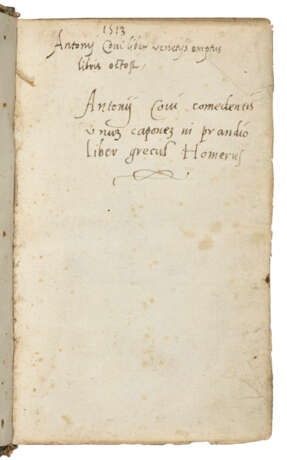 1513
Antonij Coui liber venetijs emptus
libris octo
Antonij Coui comedentis
vnuz caponez in prandio
liber grecus Homerus